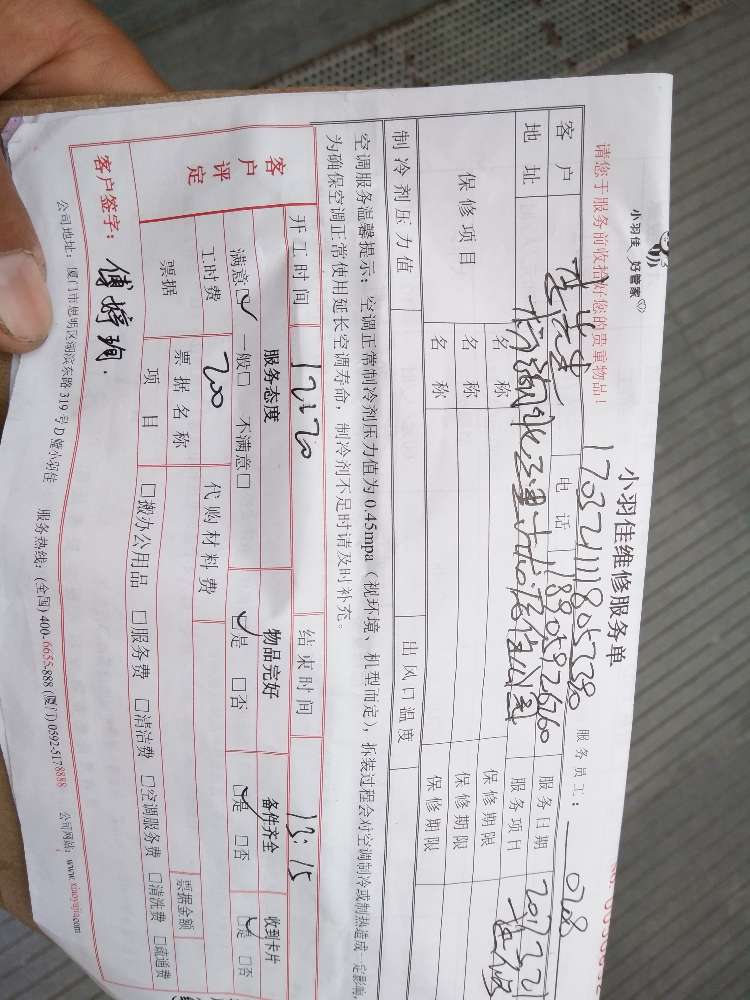 小羽佳 好管家
小羽佳维修服务单
请您于服务前收拾好您的贵重物品！
17032111805380
服务员工：0708
客户
电话 18805926760
服务日期 2017.3.21
地址
服务项目
保修项目 名称 保修期限
名称 保修期限
名称 保修期限
制冷剂压力值 出风口温度
空调服务温馨提示：空调正常制冷剂压力值为0.45mpa（视环境、机型而定），拆装过程会对空调制冷或制热造成一定影响，
为确保空调正常使用延长空调寿命，制冷剂不足时请及时补充。
开工时间 12:20 结束时间 13:15
客户评定
服务态度 物品完好 备件齐全 收到卡片
满意☑ 一般□ 不满意□ ☑是 □否 ☑是 □否 ☑是 □否
工时费 200 代购材料费
票据 票据名称 票据金额
项目 □搬办公用品 □服务费 □清洁费 □空调服务费 □清洗费 □疏通费
客户签字：傅婷瑜.
公司地址：厦门市思明区湖滨东路319号D幢小羽佳 服务热线：(全国)400-6655-888 (厦门)0592-5178888 公司网站：www.xiaoyujia.com